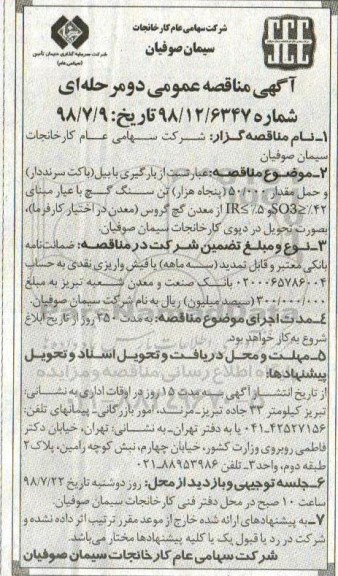 شرکت سهامی عام کارخانجات
سیمان صوفیان
شرکت سرمایه گذاری سیمان تأمین
(سهامی عام)
آگهی مناقصه عمومی دو مرحله‌ای
شماره ۹۸/۱۲/۶۳۴۷ تاریخ: ۹۸/۷/۹
۱-نام مناقصه گزار: شرکت سهامی عام کارخانجات
سیمان صوفیان
۲-موضوع مناقصه: عبارتست از بارگیری با بیل (باکت سرنددار)
و حمل مقدار ۵۰/۰۰۰ (پنجاه هزار) تن سنگ گچ با عیار مبنای
SO3≥٪۴۲ و IR≤٪۵ از معدن گچ گروس (معدن در اختیار کارفرما)،
بصورت تحویل در دپوی کارخانجات سیمان صوفیان.
۳-نوع و مبلغ تضمین شرکت در مناقصه: ضمانت‌نامه
بانکی معتبر و قابل تمدید (سه ماهه) یا فیش واریزی نقدی به حساب
۰۲۰۰۰۶۵۷۸۶۰۰۴ بانک صنعت و معدن شعبه تبریز به مبلغ
۳۰۰/۰۰۰/۰۰۰ (سیصد میلیون) ریال به نام شرکت سیمان صوفیان.
۴-مدت اجرای موضوع مناقصه: به مدت ۲۵۰ روز از تاریخ ابلاغ
شروع به کار خواهد بود.
۵-مهلت و محل دریافت و تحویل اسناد و تحویل
پیشنهادها:
از تاریخ انتشار آگهی به مدت ۱۵ روز در اوقات اداری به نشانی:
تبریز کیلومتر ۳۳ جاده تبریز-مرند، امور بازرگانی- پیمانهای تلفن:
۰۴۱-۴۲۵۲۷۱۵۶ یا به دفتر تهران- به نشانی: تهران، خیابان دکتر
فاطمی روبروی وزارت کشور، خیابان چهارم، نبش کوچه رامین، پلاک ۲
طبقه دوم، واحد ۳- تلفن ۸۸۹۵۳۹۸۶-۰۲۱
۶-جلسه توجیهی و بازدید از محل: روز دوشنبه تاریخ ۹۸/۷/۲۲
ساعت ۱۰ صبح در محل دفتر فنی کارخانجات سیمان صوفیان.
۷-به پیشنهادهای ارائه شده خارج از موعد مقرر ترتیب اثر داده نشده و
شرکت در رد یا قبول یک یا کلیه پیشنهادها مختار می‌باشد.
شرکت سهامی عام کارخانجات سیمان صوفیان